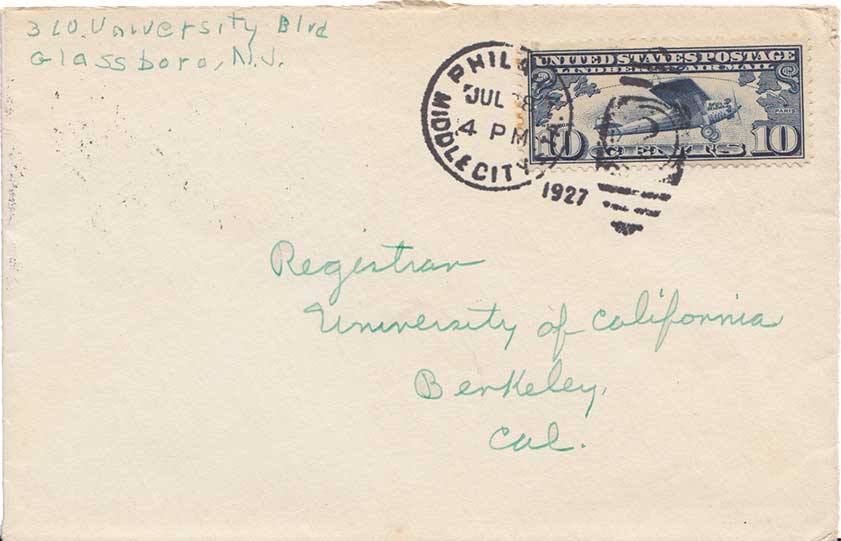 310. University Blvd
Glassboro, N.J.
PHILA.
JUL 18
4 PM
MIDDLE CITY
1927
UNITED STATES POSTAGE
LINDBERGH AIR MAIL
PARIS
10 CENTS 10
Registrar
University of California
Berkeley,
Cal.